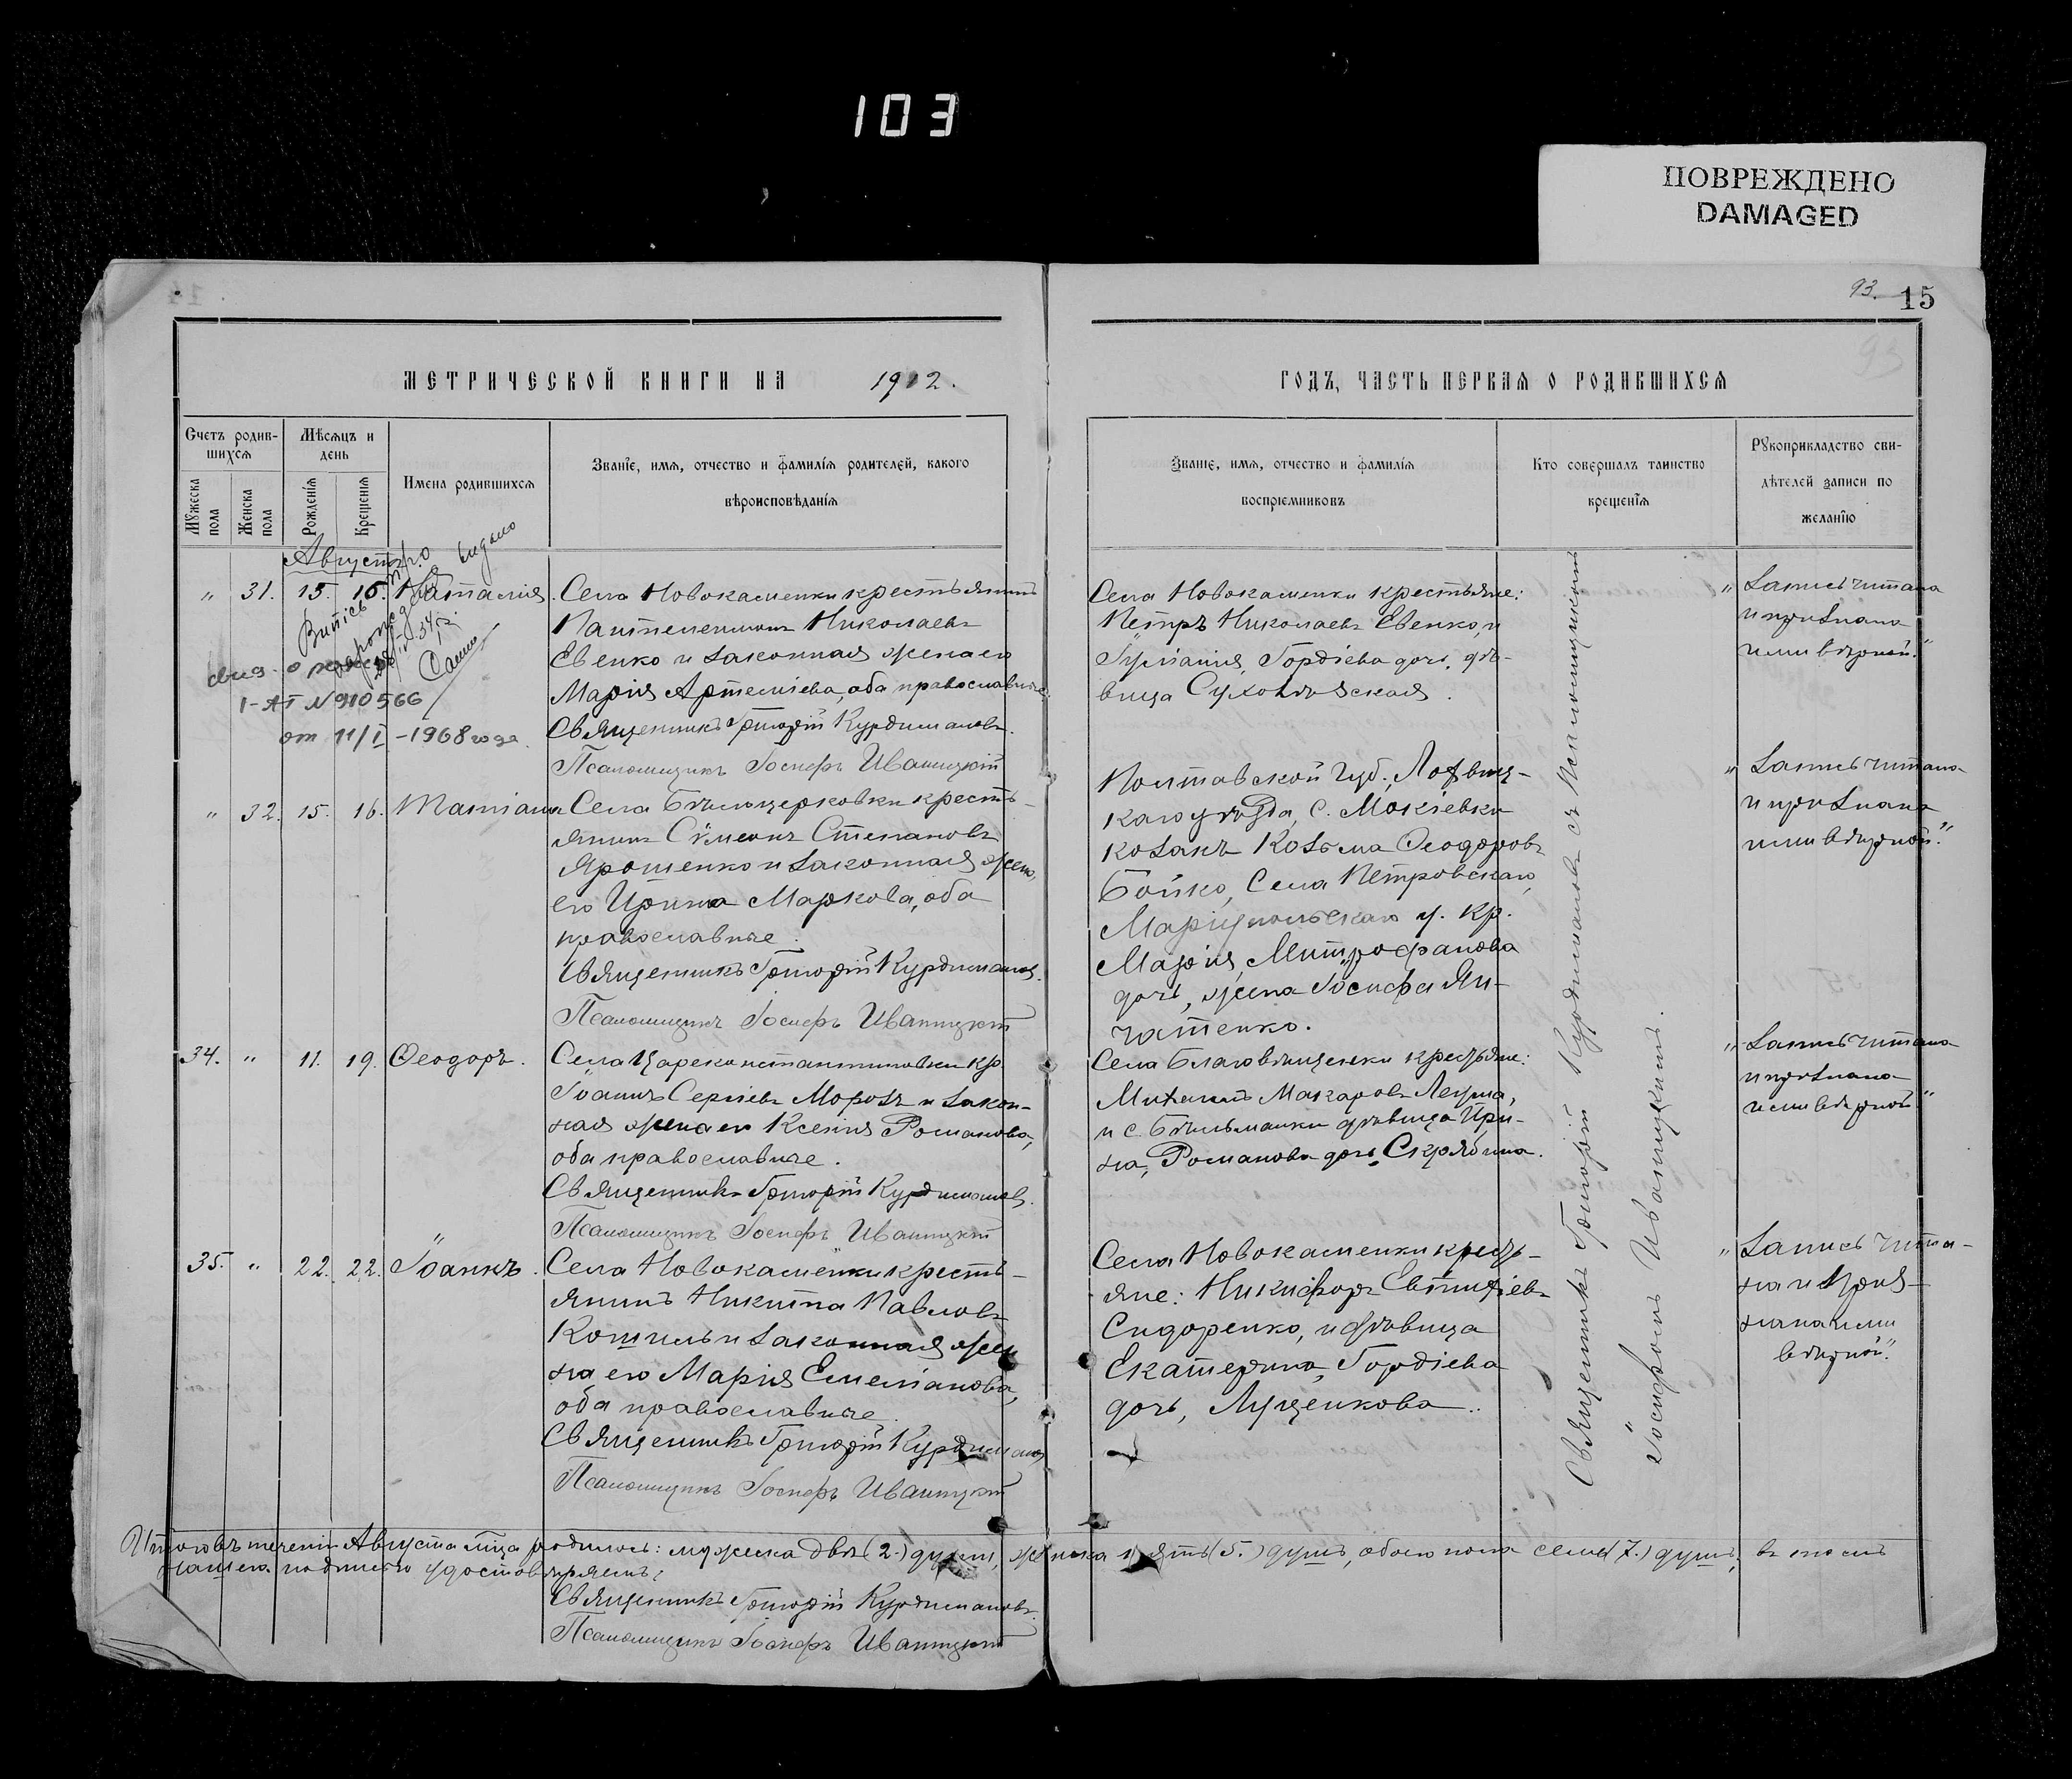 103
ПОВРЕЖДЕНО
DAMAGED
93. 15
93
МЕТРИЧЕСКОЙ КНИГИ НА 1912.
ГОДЪ, ЧАСТЬ ПЕРВАЯ О РОДИВШИХСЯ
Счетъ родив-
шихся
Мужеска пола
Женска пола
Мѣсяцъ и
день
Рожденія
Крещенія
Имена родившихся
Званіе, имя, отчество и фамилія родителей, какого
вѣроисповѣданія
Званіе, имя, отчество и фамилія
воспріемниковъ
Кто совершалъ таинство
крещенія
Рукоприкладство сви-
дѣтелей записи по
желанію
Августъ
" 31. 15. 16. Наталія. Села Новокаменки крестьянинъ
Пантелеимонъ Николаевъ
Евенко и законная жена его
Марія Артеміева, оба православные.
Священникъ Григорій Курдимановъ.
Псаломщикъ Іосифъ Иваницкій
Витясь про
народження видано
свид. о рожд.
I-АГ №910566
от 11/I -1968 года.
Села Новокаменки крестьяне:
Петръ Николаевъ Евенко, и
Гордіева дочь, дѣ-
вица
" Запись читана
и признана
ими вѣрной."
" 32. 15. 16. Татіана Села Бѣлоцерковки кресть-
янинъ Сѵмеонъ Степановъ
Ярошенко и законная жена
его Ирина Маркова, оба
православные.
Священникъ Григорій Курдимановъ.
Псаломщикъ Іосифъ Иваницкій
Полтавской губ., Лохвиц-
каго уѣзда, с. Мокіевки
козакъ Козьма Ѳеодоровъ
Бойко, Села Петровскаго,
Маріупольскаго у. кр.
Марія, Митрофанова
дочь, жена Іосифа Ян-
ченко.
" Запись читана
и признана
ими вѣрной."
34. " 11. 19. Ѳеодоръ. Села Цареконстантиновки кр.
Іоаннъ Сергіевъ Морозъ и закон-
ная жена его Ксенія Романова,
оба православные.
Священникъ Григорій Курдимановъ.
Псаломщикъ Іосифъ Иваницкій
Села Благовѣщенки крестьяне:
Михаилъ Макаровъ
и с. Бѣльманки дѣвица Ири-
на, Романова дочь, Скрябина.
" Запись читана
и признана
ими вѣрной."
35. " 22. 22. Іоаннъ. Села Новокаменки кресть-
янинъ Никита Павловъ
Кошиль и законная же-
на его Марія Емеліанова,
оба православные.
Священникъ Григорій Курдимановъ
Псаломщикъ Іосифъ Иваницкій
Села Новокаменки кресть-
яне: Никифоръ Евтихіевъ
Сидоренко, и дѣвица
Екатерина, Гордіева
дочь, Луценкова.
" Запись чита-
на и приз-
нана ими
вѣрной."
Священникъ Григорій Курдимановъ съ Псаломщикомъ
Іосифомъ Иваницкимъ.
Итого въ теченіи Августа м-ца родилось: мужска два (2.) души, женска пять (5.) душъ, обоего пола семь (7.) душъ, въ чемъ
нашею подписью удостовѣряемъ:
Священникъ Григорій Курдимановъ.
Псаломщикъ Іосифъ Иваницкій